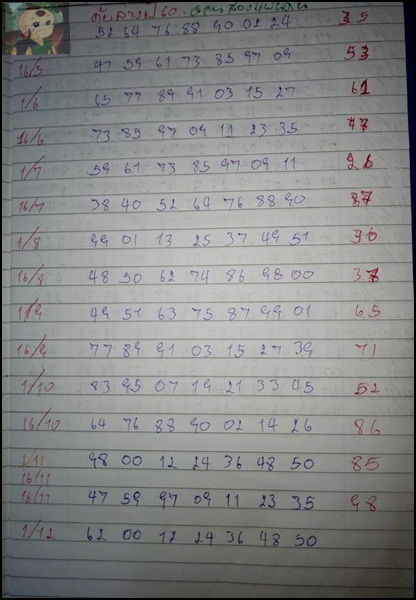 52 64 76 88 90 02 24 35
16/5 47 59 61 73 85 97 09 53
1/6 65 77 89 91 03 15 27 61
16/6 73 85 97 09 11 23 35 47
1/7 59 61 73 85 97 09 11 26
16/7 38 40 52 64 76 88 90 87
1/8 99 01 13 25 37 49 51
48 50 62 74 86 98 00 37
49 51 63 75 87 99 01 65
16/9 77 89 91 03 15 27 39 71
1/10 83 95 07 19 21 33 45 52
16/10 64 76 88 90 02 14 26 86
1/11 98 00 12 24 36 48 50 85
16/11
16/11 47 59 97 09 11 23 35 98
1/12 62 00 12 24 36 48 50